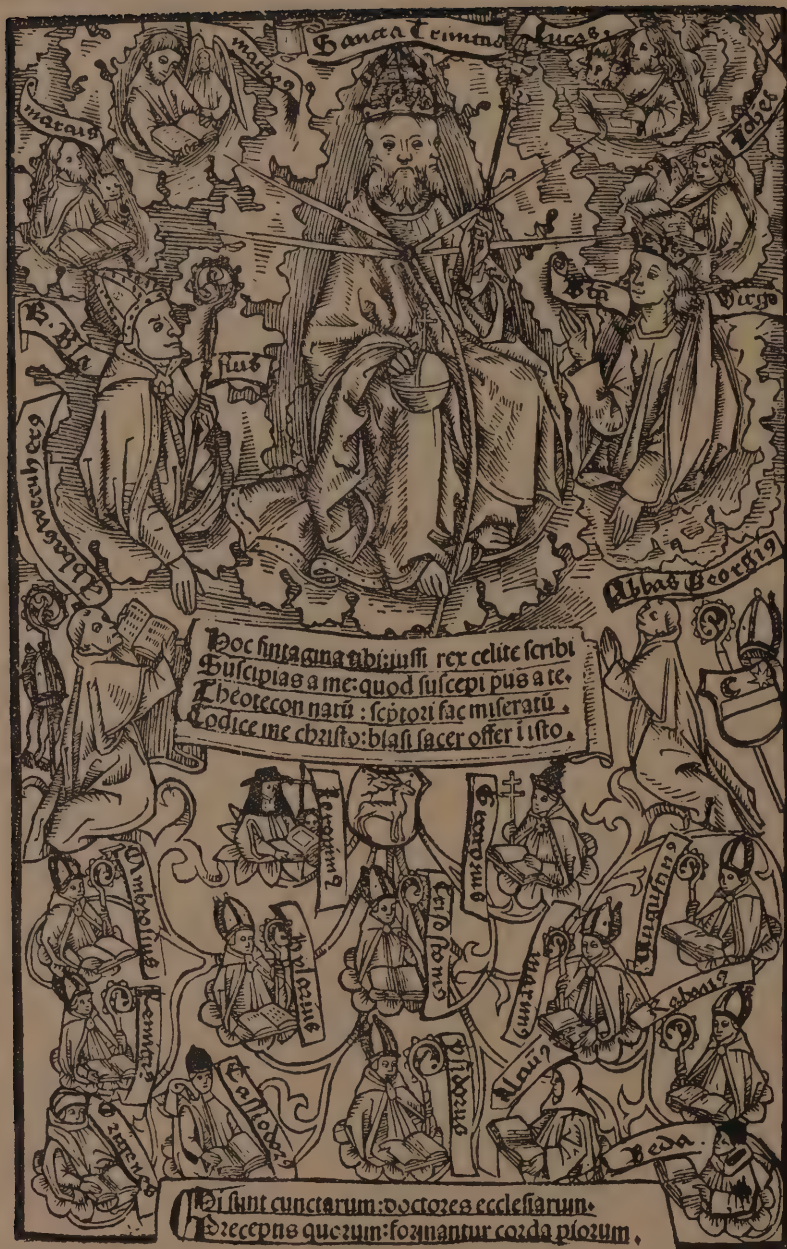 Sancta Trinitas
Lucas
matheꝰ
Iohes
B. Bla
sius
Bta
Virgo
Abbas Georgiꝰ
Hoc sintagma tibi: iussi rex celite scribi
Suscipias a me: quod suscepi pus a te.
Theotecon natū : scptori fac miseratū .
Codice me christo: blasi sacer offer i isto .
Ieronimꝰ
Ambrosius
Augustinꝰ
Hylarius
Crisostomꝰ
Rabanꝰ
Ysidorus
Beda .
Hi sunt cunctarum: doctores ecclesiarum.
Preceptis quorum: formantur corda piorum .